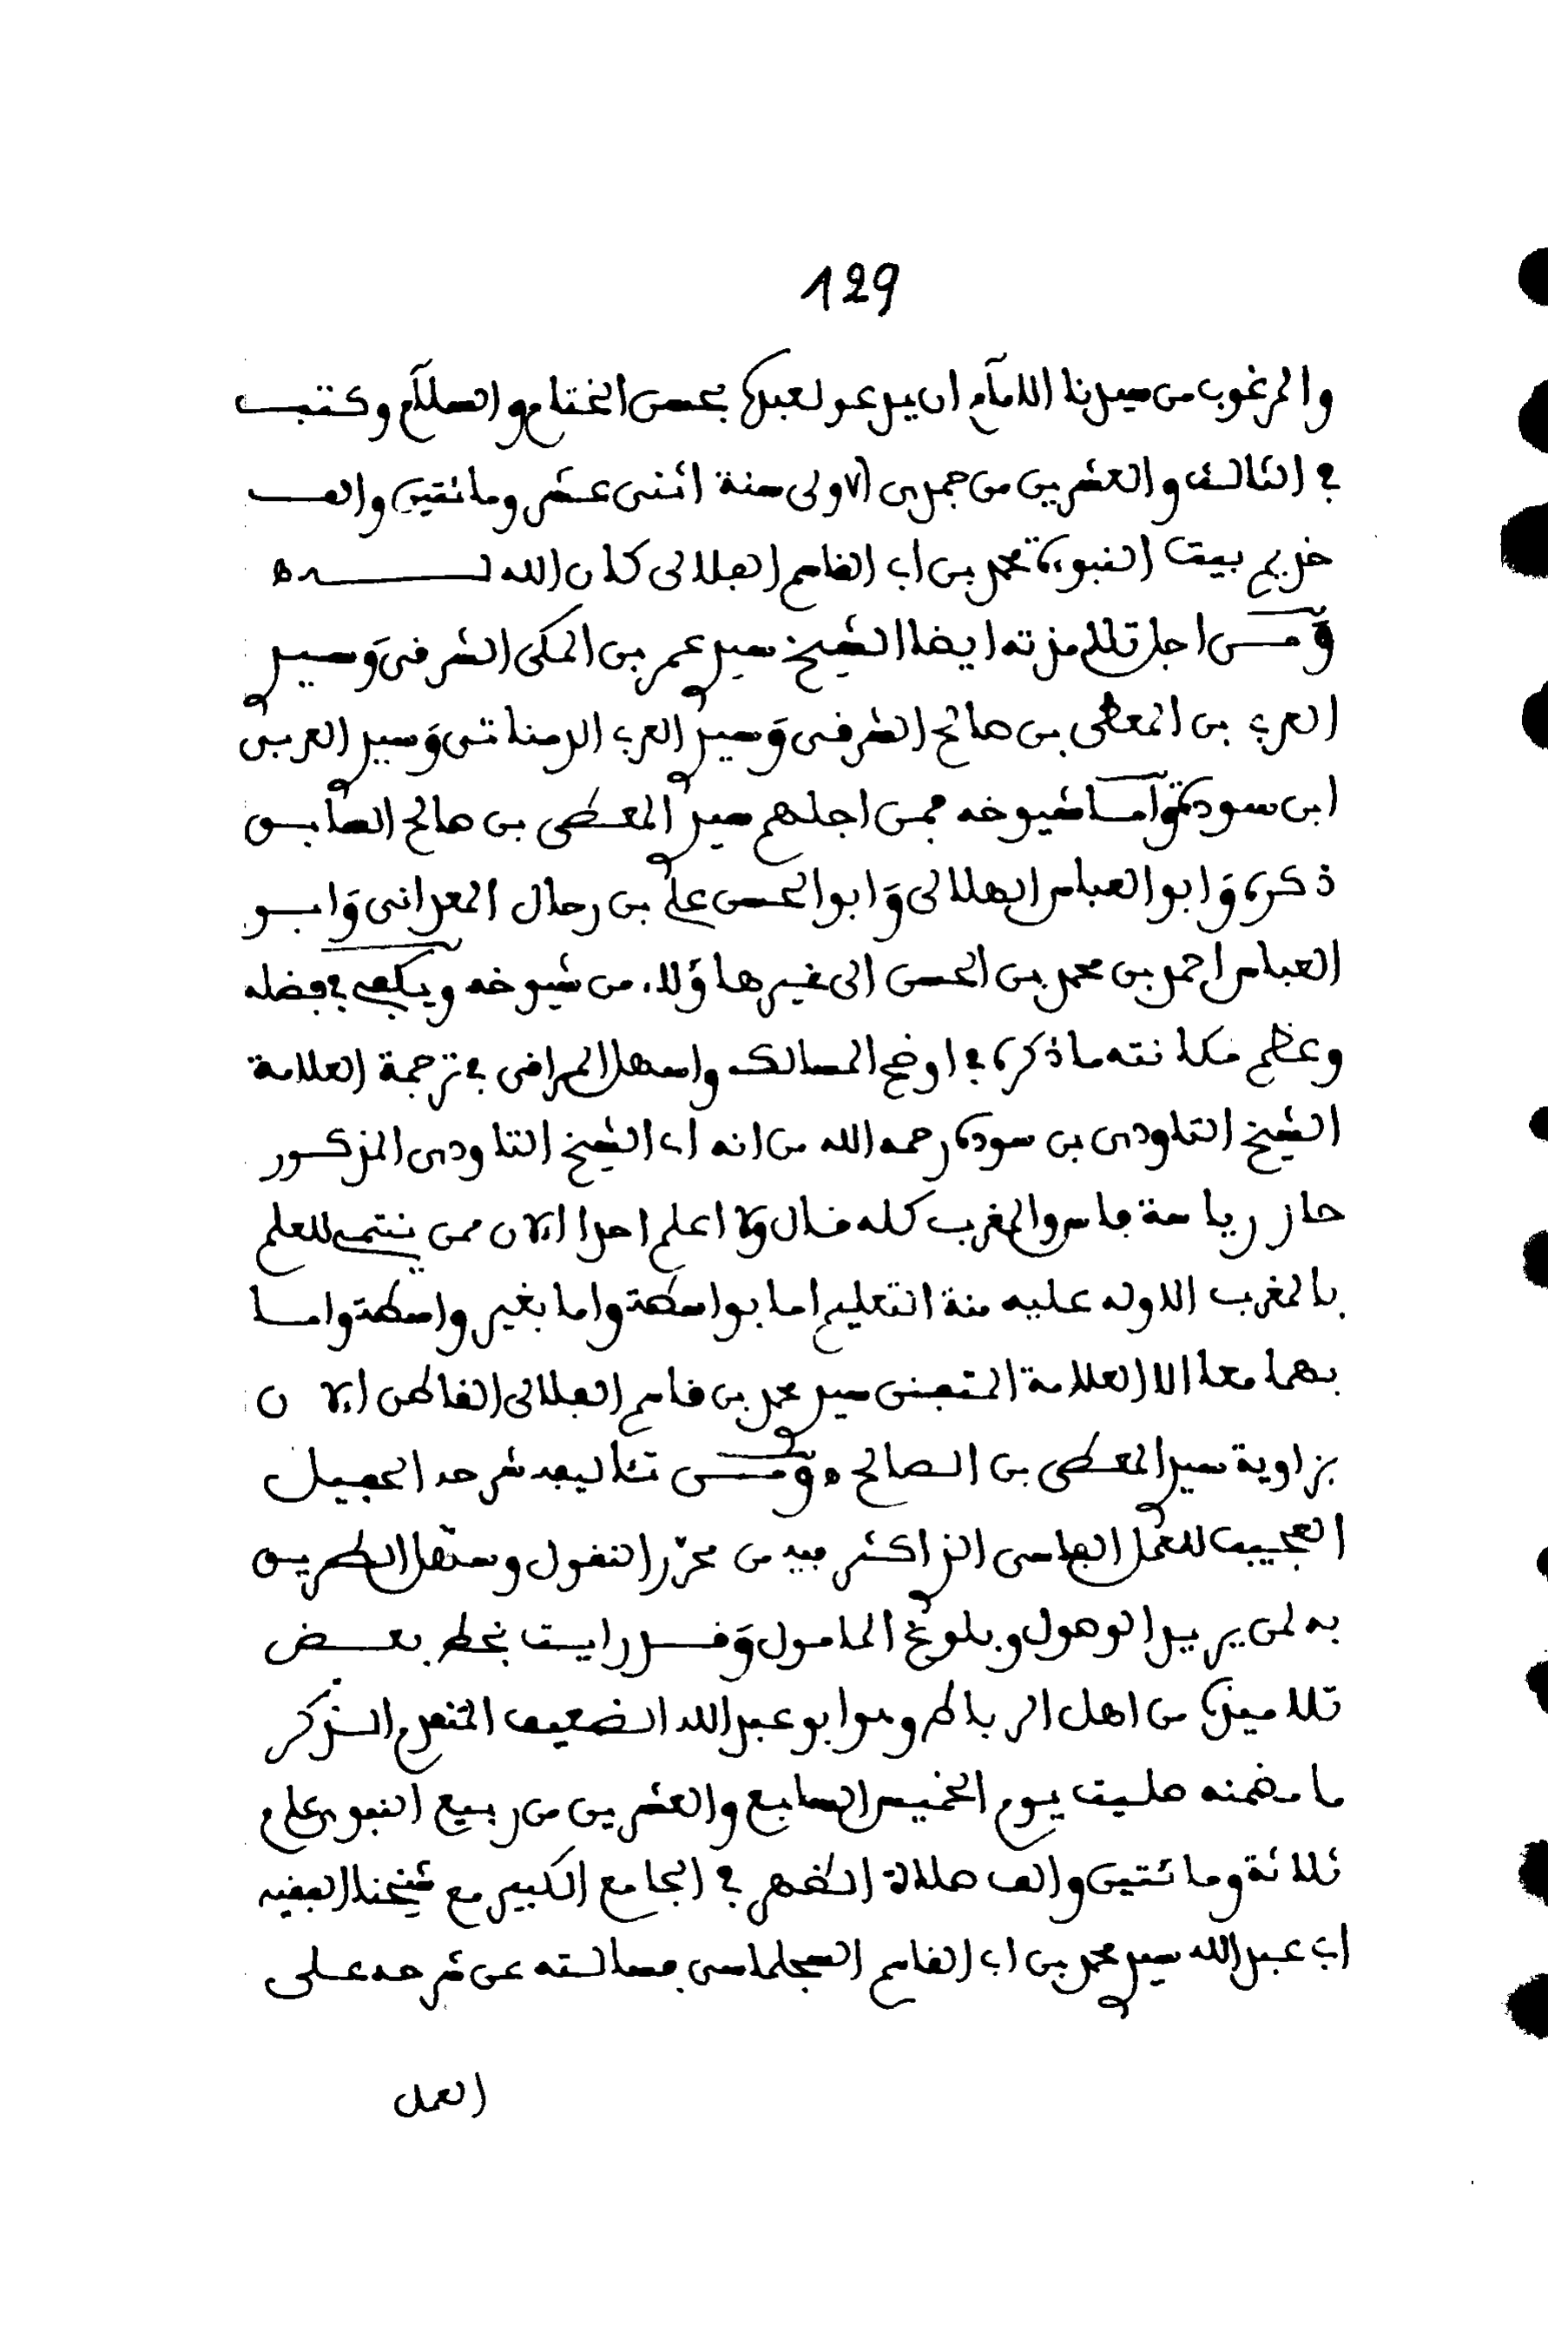 129
والمرغوب من سيدنا الامام ان يدعو لعبده بحسن الختام والسلام وكتب
في الثالث والعشرين من جمدى الاولى سنة اثنى عشر ومائتين والف
خديم بيت النبوة محمد بن ابي القاسم الفلالى كان الله لـــه
ومن اجل تلامذته ايضا الشيخ سيدي عمر بن المكى الشرقى وسيدي
العربي بن المعطى بن صالح الشرقى وسيدي العربي الدمناتى وسيدي العربى
ابن سودة واما شيوخه فمن اجلهم سيدي المعطى بن صالح السابق
ذكره وابو العباس الهلالى وابو الحسن علي بن رحال المعدانى وابو
العباس احمد بن محمد بن الحسن الى غير هاؤلاء من شيوخه ويكفي في فضله
وعظم مكانته ما ذكره في اوضح المسالك واسهل المراقى في ترجمة العلامة
الشيخ التاودى بن سودة رحمه الله من انه اي الشيخ التاودى المذكور
حاز رياسة فاس والمغرب كله قال ولا اعلم احدا الان ممن ينتمي للعلم
بالمغرب الا وله عليه منة التعليم اما بواسطة واما بغير واسطة واما
بهما معا الا العلامة المتفنى سيدي محمد بن قاسم الفلالى القاطن الان
بزاوية سيدي المعطى بن الصالح ه ومن تئاليفه شرحه الحفيل
العجيب للعمل الفاسى الذي اكثر فيه من محرر النقول وسهل الطريق
به لمن يريد الوصول وبلوغ المامول وقد رايت بخط بعض
تلاميذه من اهل الرباط وهو ابو عبد الله الضعيف المتقدم الذكر
ما مضمنه صليت يوم الخميس السابع والعشرين من ربيع النبوي عام
ثلاثة ومائتين والف صلاة الظهر في الجامع الكبير مع شيخنا الفقيه
ابي عبد الله سيدي محمد بن ابي القاسم السجلماسى فسالته عن شرحه على
العمل